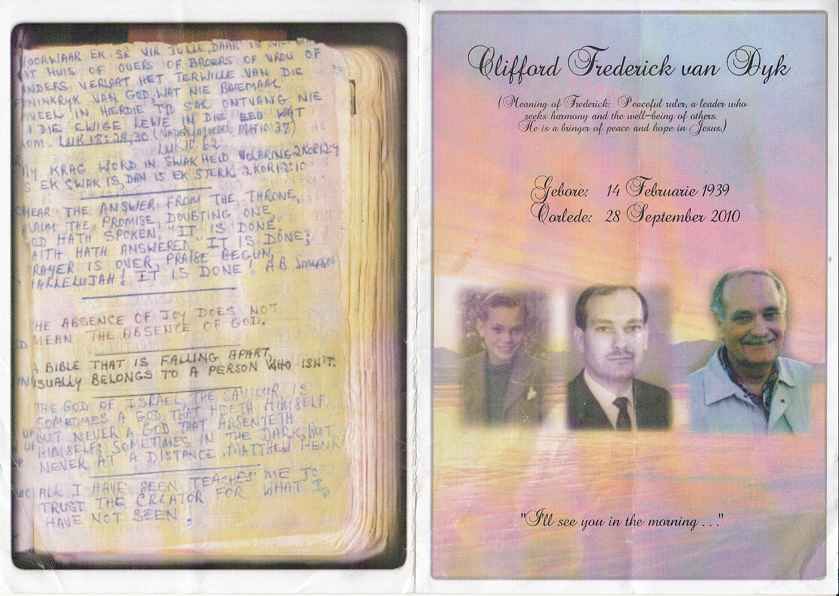 VOORWAAR EK SÊ VIR JULLE, DAAR IS
HUIS OF OUERS OF BROERS OF VROU OF
KINDERS VERLAAT HET TERWILLE VAN DIE
KONINKRYK VAN GOD, WAT NIE
IN HIERDIE TYD SAL ONTVANG NIE
DIE EWIGE LEWE IN DIE EEU WAT
KOM. LUK 18:29,30
LUK
MY KRAG WORD IN SWAKHEID VOLBRING 2 KOR 12:9
EK SWAK IS, DAN IS EK STERK. 2 KOR 12:10
HEAR THE ANSWER FROM THE THRONE,
CLAIM THE PROMISE, DOUBTING ONE,
GOD HATH SPOKEN, "IT IS DONE."
FAITH HATH ANSWERED "IT IS DONE";
PRAYER IS OVER, PRAISE BEGUN,
HALLELUJAH! IT IS DONE! A.B. SIMPSON
THE ABSENCE OF JOY DOES NOT
MEAN THE ABSENCE OF GOD.
A BIBLE THAT IS FALLING APART,
USUALLY BELONGS TO A PERSON WHO ISN'T.
THE GOD OF ISRAEL, THE SAVIOUR IS
SOMETIMES A GOD THAT HIDETH HIMSELF,
BUT NEVER A GOD THAT ABSENTETH
HIMSELF; SOMETIMES IN THE DARK, BUT
NEVER AT A DISTANCE. MATTHEW HENRY
ALL I HAVE SEEN TEACHES ME TO
TRUST THE CREATOR FOR WHAT I
HAVE NOT SEEN.
Clifford Frederick van Dyk
(Meaning of Frederick: Peaceful ruler, a leader who
seeks harmony and the well-being of others.
He is a bringer of peace and hope in Jesus.)
Gebore: 14 Februarie 1939
Oorlede: 28 September 2010
"I'll see you in the morning . . ."